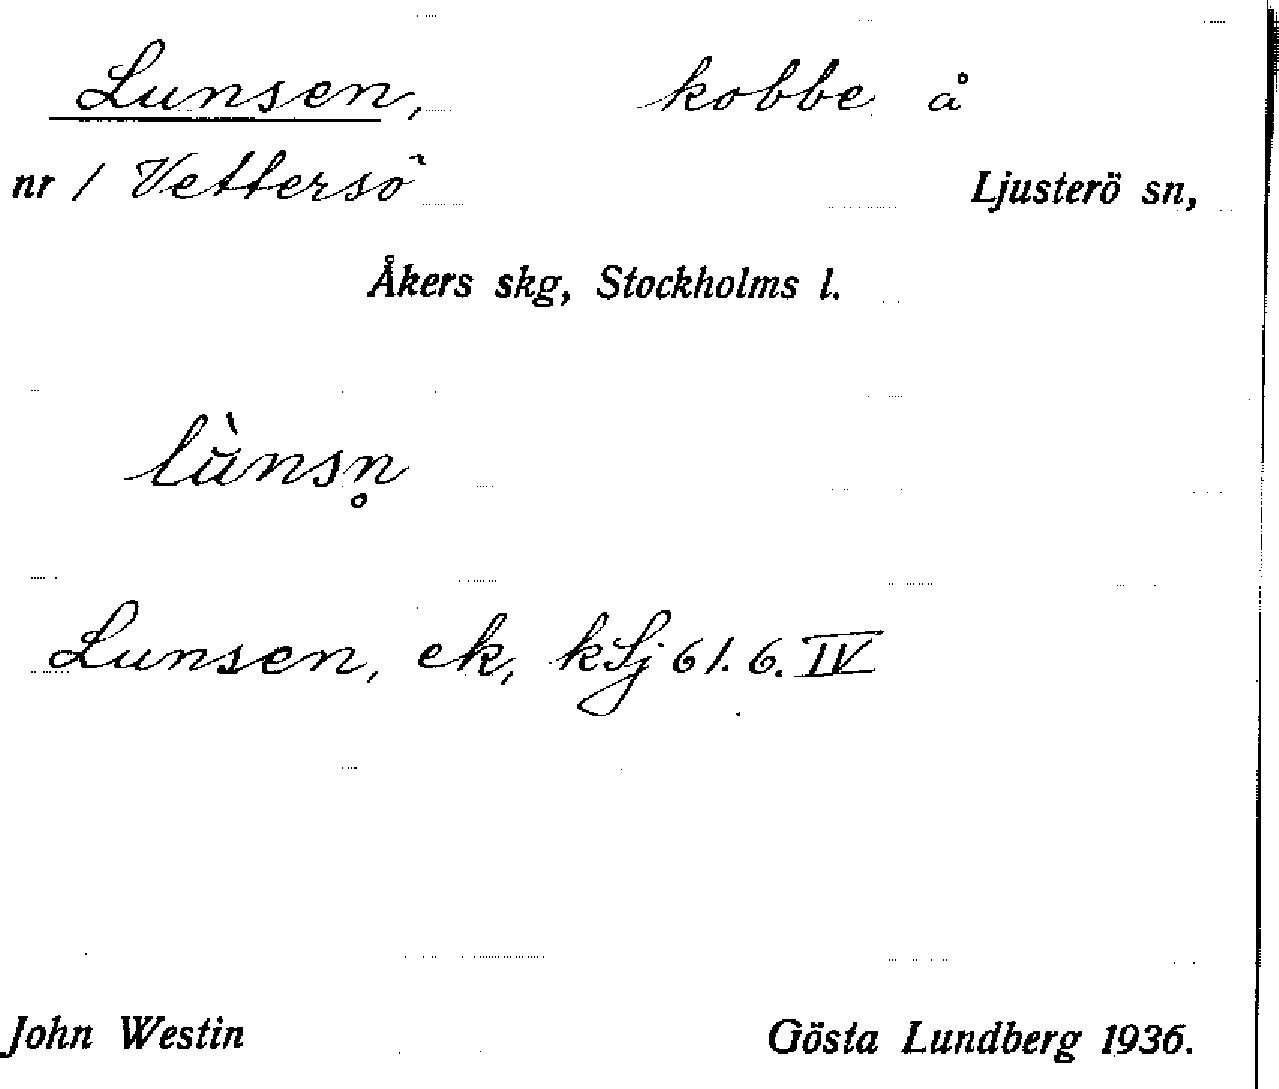 Lunsen, kobbe å
nr 1 Vettersö Ljusterö sn,
Åkers skg, Stockholms l.
lùnsn̥
Lunsen, ek, kSj 61. 6. IV
John Westin Gösta Lundberg 1936.